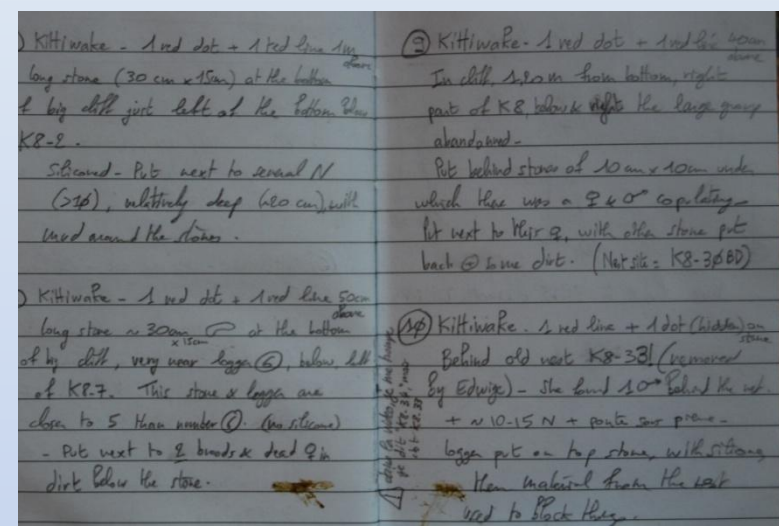 ) Kittiwake - 1 red dot + 1 red line 1m
above
long stone (30 cm x 15cm) at the bottom
of big cliff just left of the bottom below
K8-2.
Siliconed - Put next to several N
(>1Ø), relatively deep (~20 cm), with
mud around the stones.
) Kittiwake - 1 red dot + 1 red line 50cm
above
long stone ~ 30cm at the bottom
x 15cm
of big cliff, very near logger ⑥, below, left
of K8-7. This stone & logger are
closer to 5 than number ⑥. (no silicone)
- Put next to 2 broods & dead ♀ in
dirt below the stone.
⑨ Kittiwake - 1 red dot + 1 red line 40cm
above
In cliff, 1,20m from bottom, right
part of K8, below & right the large group
abandoned -
Put behind stones of 10 cm x 10cm under
which there was a ♀ & ♂ copulating -
Put next to this ♀, with other stone put
back some dirt. (Nest site = K8-3ØBD)
①Ø Kittiwake. 1 red line + 1 dot (hidden) on
stone
Behind old nest K8-33! (removed
by Edwige) - She found 1♂ behind the nest.
+ ~ 10-15 N + ponte sous pierre -
logger put on top stone, with silicone,
then material from the nest
used to block